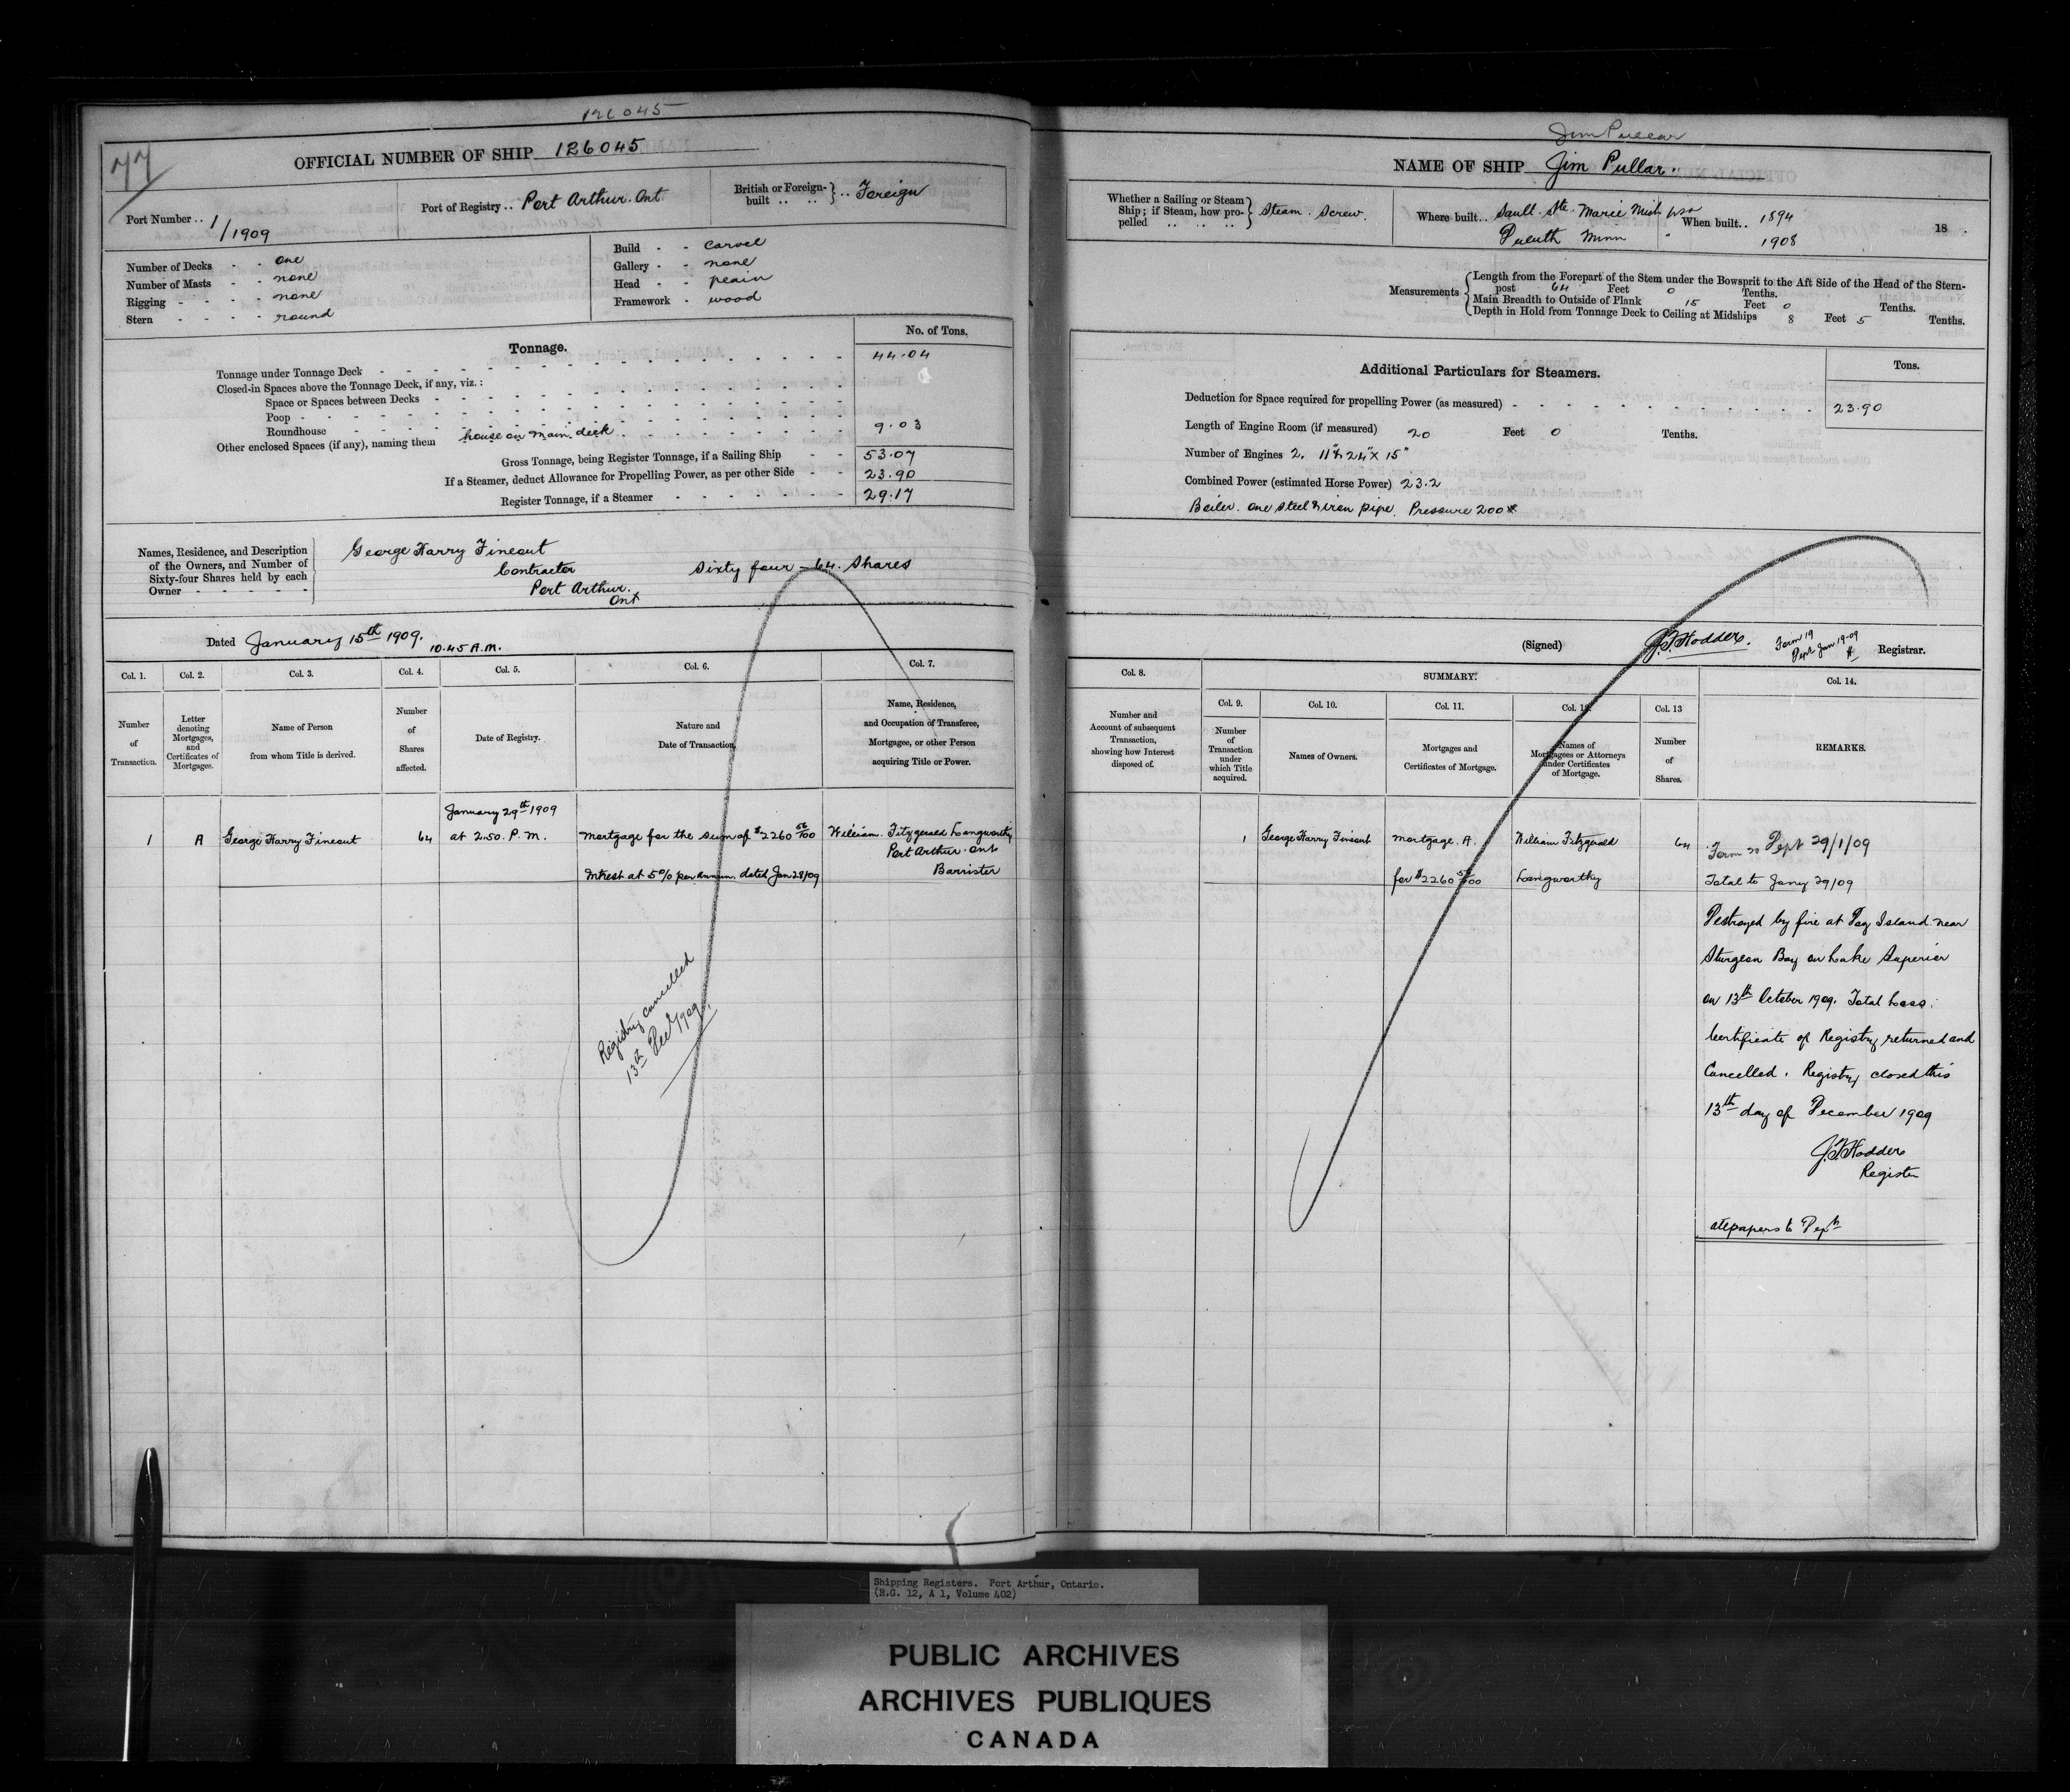 126045
77
OFFICIAL NUMBER OF SHIP 126045
Port Number .. 1/1909
Port of Registry .. Port Arthur. Ont
British or Foreign-built .. .. } .. Foreign
Number of Decks - - one
Number of Masts - - none
Rigging - - - - none
Stern - - - - round
Build - - Carvel
Gallery - - none
Head - - plain
Framework - wood
Tonnage.
No. of Tons.
Tonnage under Tonnage Deck 44.04
Closed-in Spaces above the Tonnage Deck, if any, viz.:
Space or Spaces between Decks
Poop
Roundhouse
Other enclosed Spaces (if any), naming them house on main deck 9.03
Gross Tonnage, being Register Tonnage, if a Sailing Ship 53.07
If a Steamer, deduct Allowance for Propelling Power, as per other Side 23.90
Register Tonnage, if a Steamer 29.17
Names, Residence, and Description
of the Owners, and Number of
Sixty-four Shares held by each
Owner - - - - -
George Harry Fineout
Contractor Sixty four - 64. Shares
Port Arthur.
Ont
Dated January 15th 1909.
10.45 A.M.
Col. 1. Number of Transaction.
Col. 2. Letter denoting Mortgages, and Certificates of Mortgages.
Col. 3. Name of Person from whom Title is derived.
Col. 4. Number of Shares affected.
Col. 5. Date of Registry.
Col. 6. Nature and Date of Transaction.
Col. 7. Name, Residence, and Occupation of Transferee, Mortgagee, or other Person acquiring Title or Power.
January 29th 1909
1 A George Harry Fineout 64 at 2.50. P.M. Mortgage for the sum of $2260 56/100 William. Fitzgerald Langworthy
Port Arthur. Ont
Intrest at 5% per annum. dated Jan 28/09 Barrister
Registry cancelled
13th Dec 1909.
Jim Pullar
NAME OF SHIP Jim Pullar.
Whether a Sailing or Steam
Ship; if Steam, how pro-
pelled .. .. ..
Steam. Screw.
Where built.. Sault. Ste. Marie Mich
Duluth Minn
When built.. 1894
1908
18 .
Measurements
Length from the Forepart of the Stem under the Bowsprit to the Aft Side of the Head of the Stern-
post 64 Feet 0 Tenths.
Main Breadth to Outside of Plank 15 Feet 0 Tenths.
Depth in Hold from Tonnage Deck to Ceiling at Midships 8 Feet 5 Tenths.
Additional Particulars for Steamers.
Tons.
Deduction for Space required for propelling Power (as measured) 23.90
Length of Engine Room (if measured) 20 Feet 0 Tenths.
Number of Engines 2. 11" & 24" x 15"
Combined Power (estimated Horse Power) 23.2
Boiler. one steel & iron pipe. Pressure 200#
(Signed) J.F. Hodder. Registrar.
Form 19
Dept Jan 19-09
Col. 8. Number and Account of subsequent Transaction, showing how Interest disposed of.
SUMMARY.
Col. 9. Number of Transaction under which Title acquired.
Col. 10. Names of Owners.
Col. 11. Mortgages and Certificates of Mortgage.
Col. 12. Names of Mortgagees or Attorneys under Certificates of Mortgage.
Col. 13 Number of Shares.
Col. 14. REMARKS.
1 George Harry Fineout Mortgage. A. William Fitzgerald 64
for $2260 56/100 Langworthy
Form 20 Dept 29/1/09
Total to Jany 29/09
Destroyed by fire at Dog Island near
Sturgeon Bay on Lake Superior
on 13th October 1909. Total Loss.
Certificate of Registry returned and
Cancelled. Registry closed this
13th day of December 1909
J.F. Hodder
Register
all papers to Dept
Shipping Registers. Port Arthur, Ontario.
(R.G. 12, A 1, Volume 402)
PUBLIC ARCHIVES
ARCHIVES PUBLIQUES
CANADA